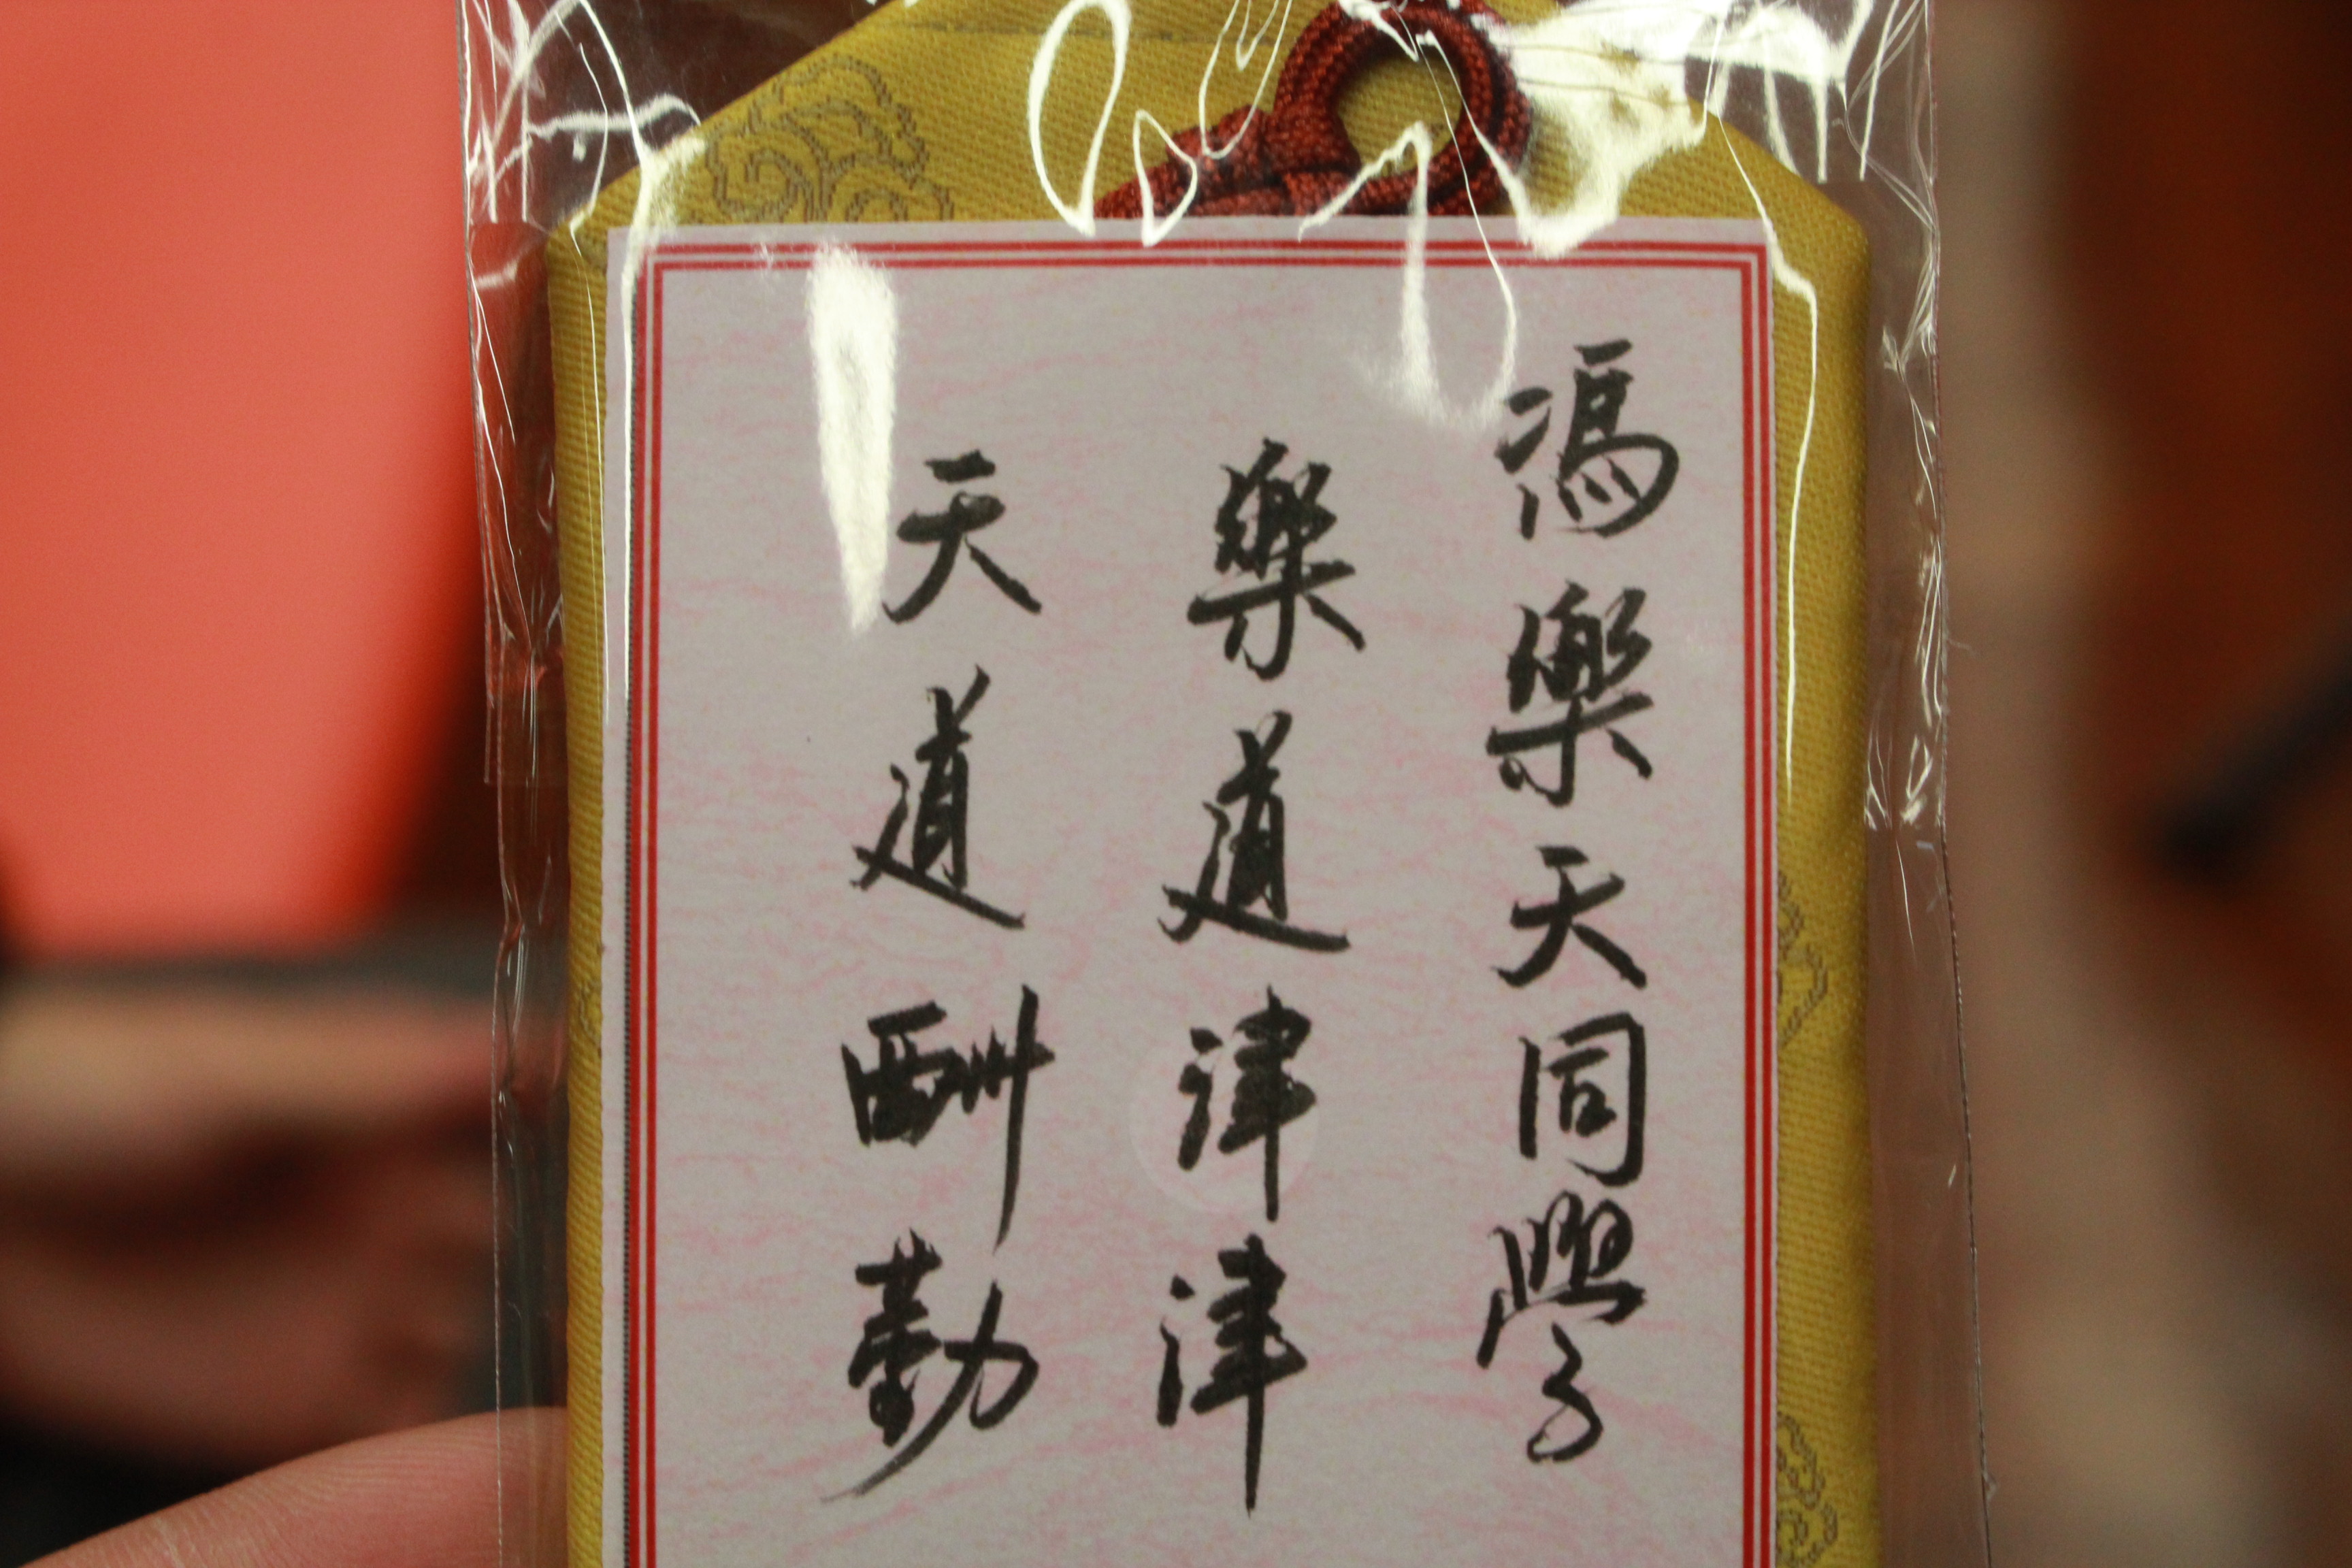 馮樂天同學
樂道津津
天道酬勤